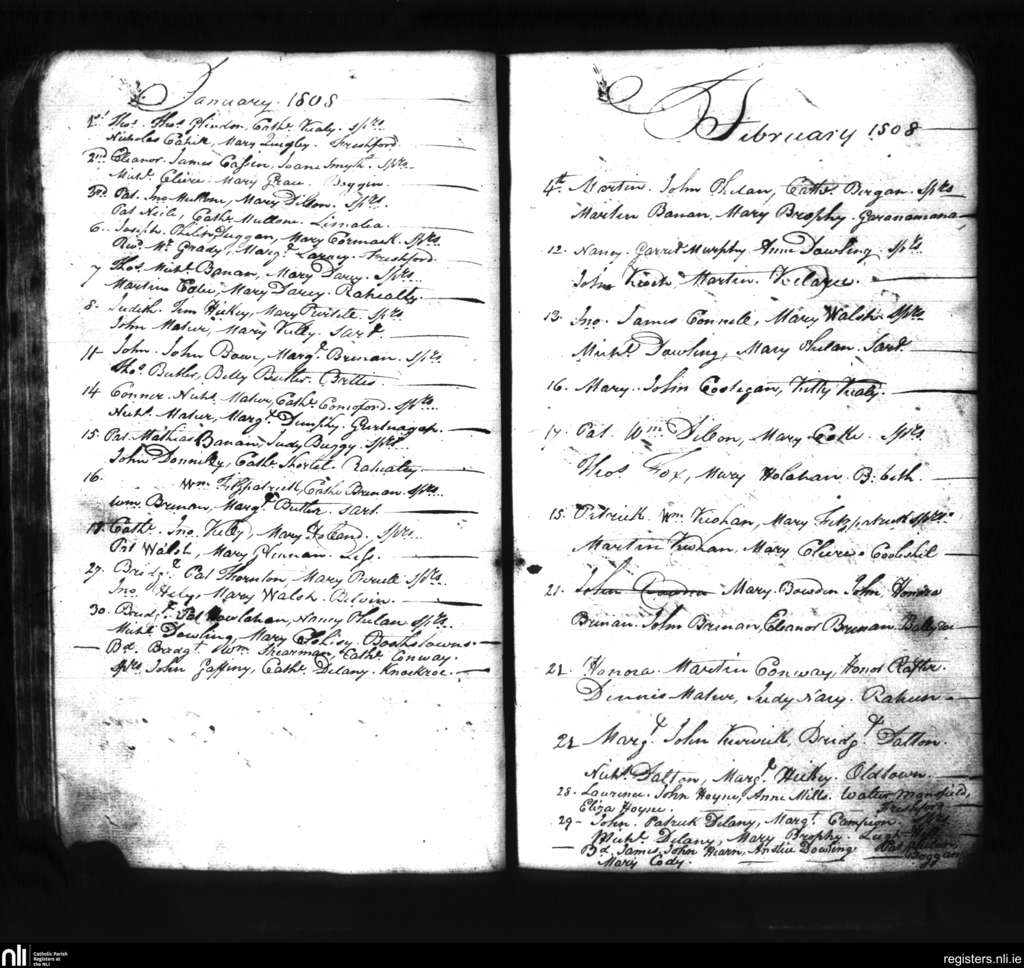 January. 1808
1st Thos. Thos. Glindon, Cathe. Kealy. Sprs.
Nicholas Cahill, Mary Quigley. Freshford.
2nd Eleanor. James Cassin, Joane Smyth. Sprs.
Michl. Cleere. Mary Grace. Boggin.
3rd Pat. Jno. Mullone, Mary Dillon. Sprs.
Pat Neile, Cathe. Mullone. Lismaka.
6. Joseph. Philip Duggan, Mary Cormack. Sprs.
Revd. Mr. Grady, Margt. Larney. Freshford.
7 Thos. Michl. Banan, Mary Darcy. Sprs.
Martin Mary Darcy. Rahealty.
8. Judith. Tim Hickey, Mary Sprs.
John Maher, Mary Kelly. Sart.
11- John. John Bowe, Margt. Brenan. Sprs.
Thos. Butler, Betty Butler.
14 Connor. Nichs. Maher, Cathe. Comoford. Sprs.
Nichs. Maher, Margt. Dunphy. Gurtnagap.
15. Pat. Mathias Banan, Judy Buggy. Sprs.
John Donnelly, Cathe. Shortel. Rahealty.
16.
Wm. Fitzpatrick, Cathe. Brenan. Sprs.
Wm. Brenan, Margt. Butler. Sart.
Cathe. Jno. Kelly, Mary Holland. Sprs.
Pat Walsh, Mary
27. Bridgt. Pat Thornton, Mary Sprs.
Jno. Hely, Mary Walsh.
30. Bridgt. Pat Howlahan, Nancy Phelan Sprs.
Michl. Dowling, Mary
Bd. Bridgt. Wm. Shearman, Cathe. Conway.
Sprs John Gaffiny, Cathe. Delany. Knockroe.
February 1808
4th Martin. John Phelan, Cathe. Bergan. Sprs
Martin Banan, Mary Brophy. Garanamana
12. Nancy. Garret Murphy Anne Dowling Sprs.
John Martin. Kilaree.
13. Jno. James Connell, Mary Walsh. Sprs
Michl. Dowling, Mary Phelan. Sart.
16. Mary. John Costigan, Kitty Kealy.
17. Pat. Wm. Dillon, Mary Sprs.
Thos Fox, Mary Holahan. B: beth
15. Patrick Wm. Keohan, Mary Fitzpatrick Sprs.
Martin Keohan, Mary Cleere. Cooleshil
21. Mary. Bowden John Honora
Brenan. John Brenan, Eleanor Brenan.
21 Honora. Martin Conway, Honor Rafter.
Dinnis Maher, Judy Nary. Raheen.
21 Margt. John Kerwick, Bridgt. Dalton.
Nichs. Dalton, Margt. Hickey. Oldtown.
28. Laurence. John Hoyne, Anne Mills. Walter Mansfield,
Eliza Hoyne. Freshford
29- John. Patrick Delany, Margt. Campion. Sprs
Michl. Delany, Mary Brophy.
Bd. James. John Hearn, Anstie Dowling.
Mary Cody. Boggan
nli
Catholic Parish
Registers at
the NLI
registers.nli.ie